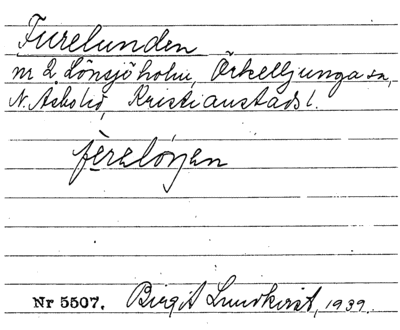 Furelunden
m 2. Lönsjöholm, Örkelljunga sn,
N. Åsbo hd, Kristianstads l.
Nr 5507. Birgit Lundkvist, 1939.